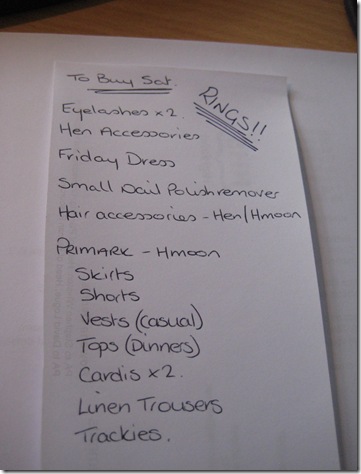 To Buy Sat.
RINGS!!
Eyelashes x 2.
Hen Accessories
Friday Dress
Small Nail Polish remover
Hair accessories - Hen/Hmoon
PRIMARK - Hmoon
Skirts
Shorts
Vests (casual)
Tops (Dinners)
Cardis x 2.
Linen Trousers
Trackies.